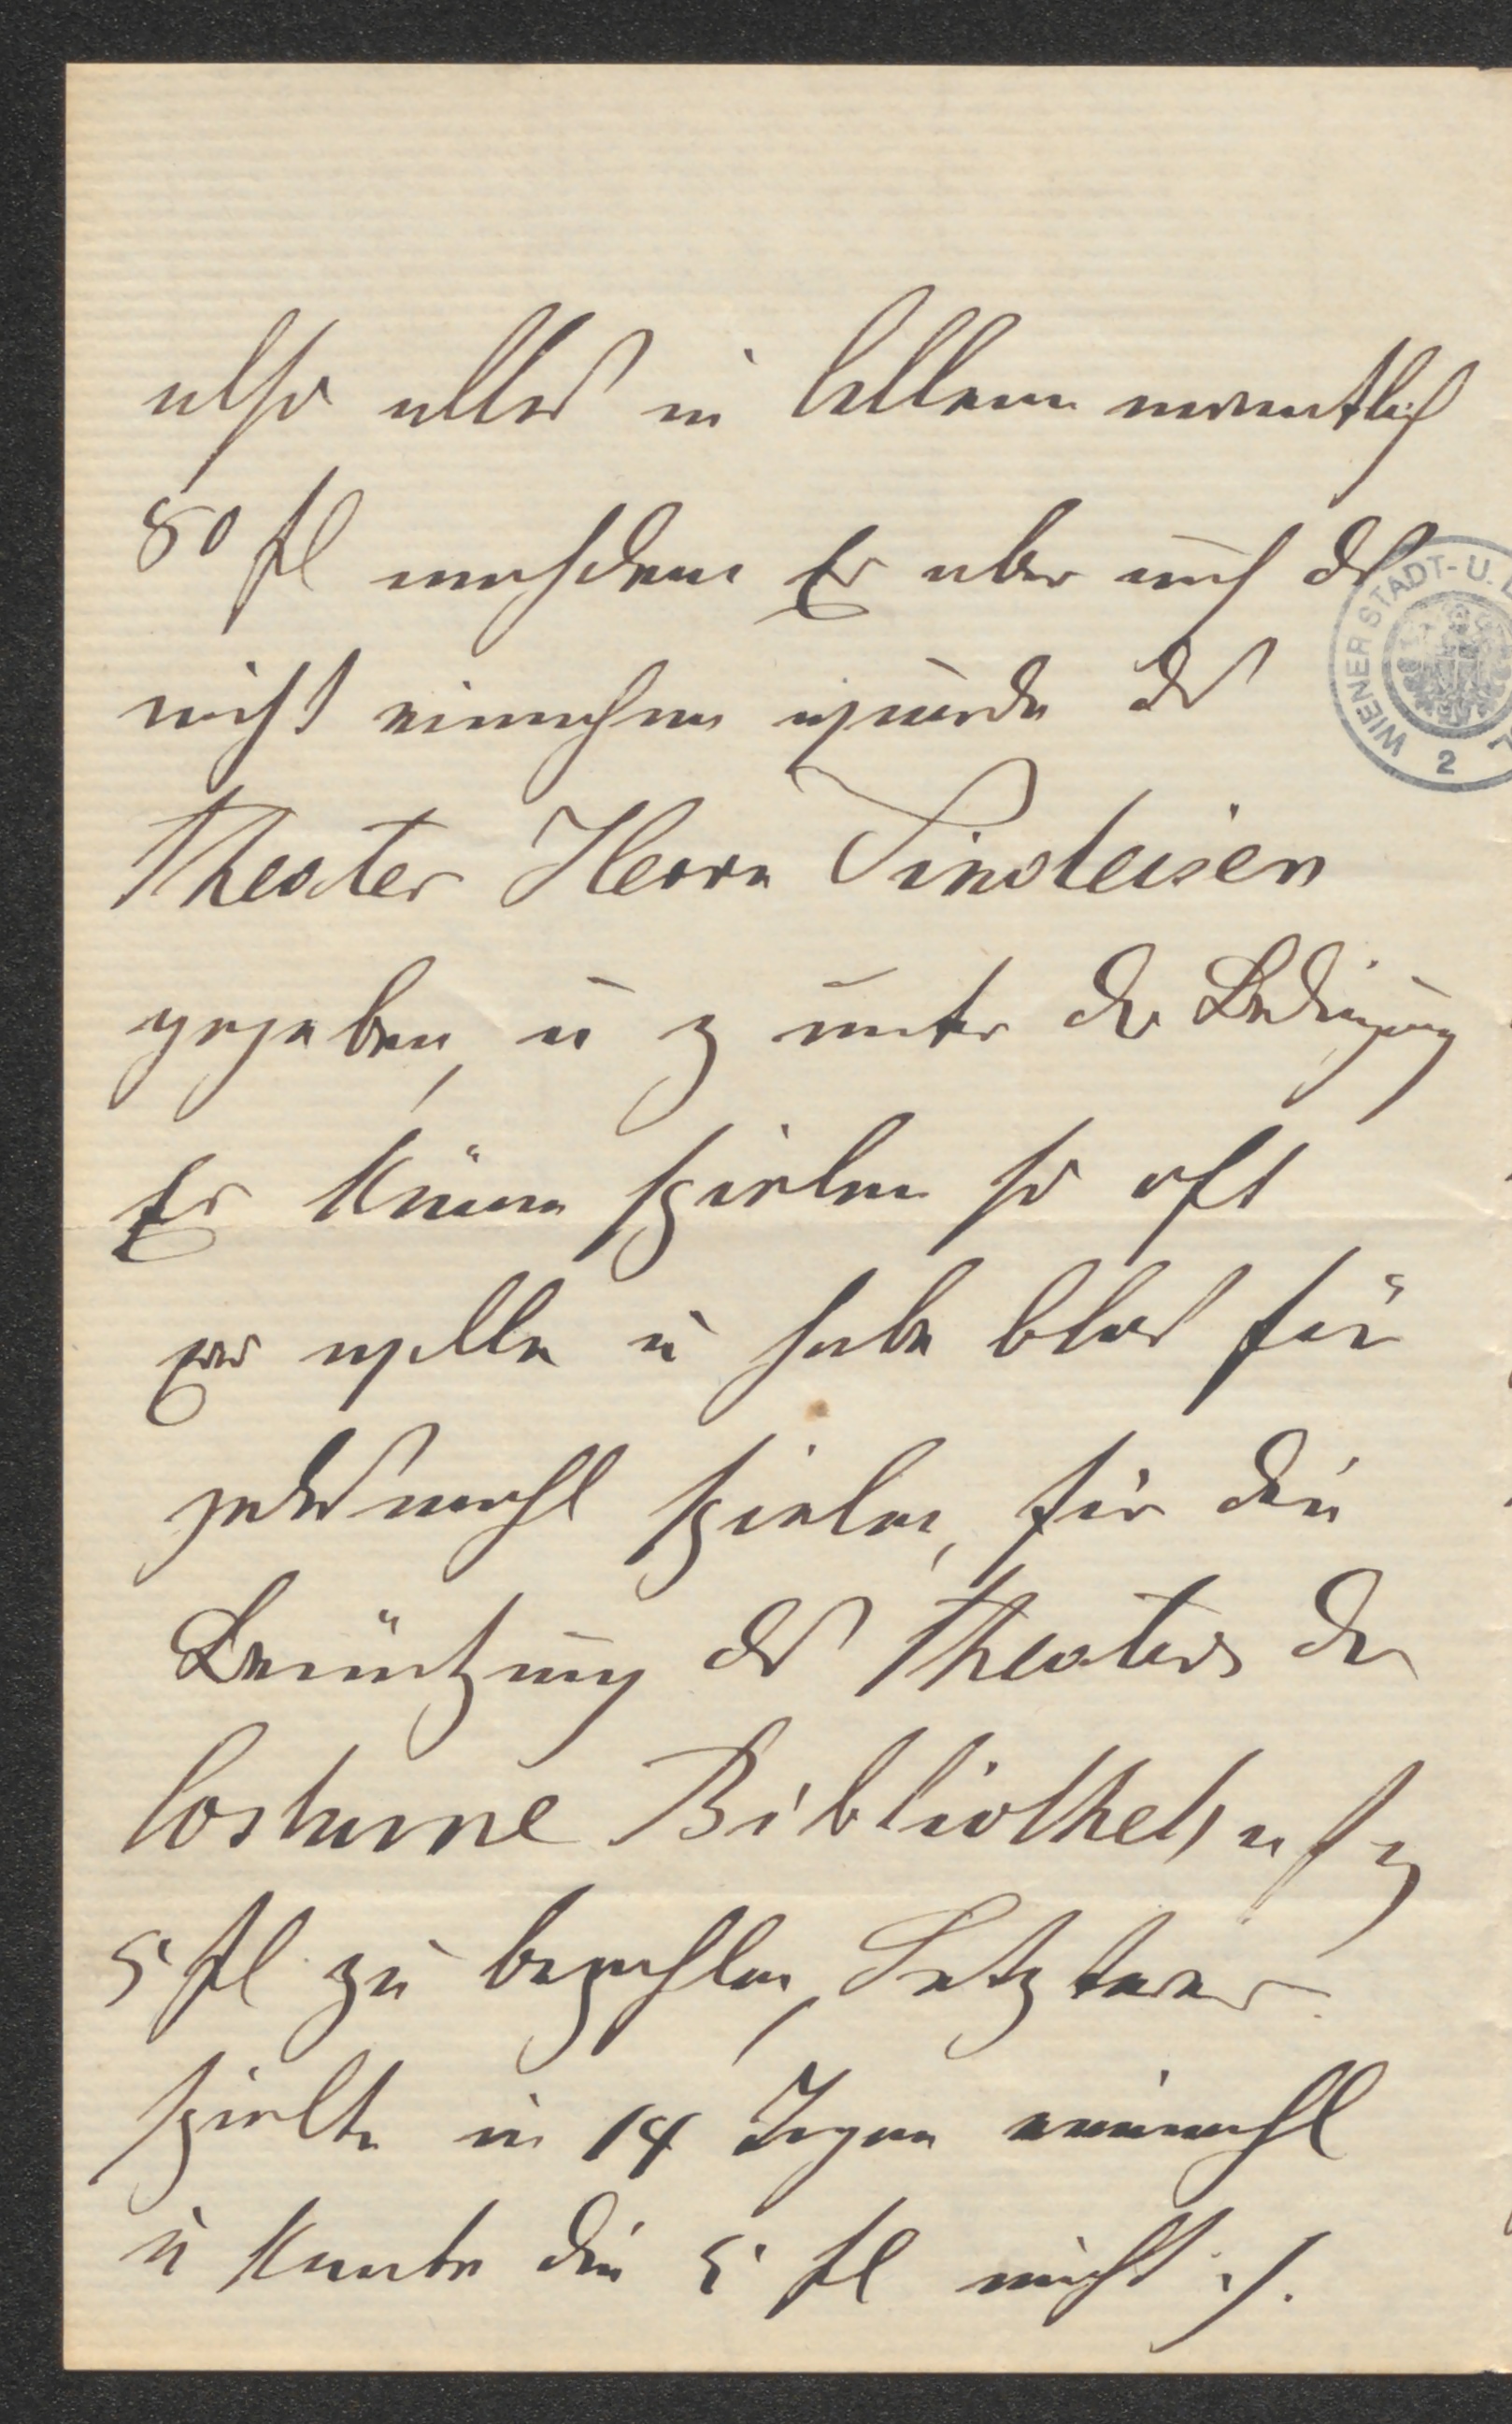 also alles in Allem monatlich
80 fl nachdem Er aber auch das
nicht einnehme wurde das
Theater Herrn Sinsteisen
gegeben, u z unter der Bedingung
Er könne spielen so oft
er wolle u habe blos für
jedesmahl spielen, für die
Benützung des Theaters der
Costume Bibliothek usz
5 fl zu bezahlen, Letzterer
spielte in 14 Tagen einmahl
u konnte die 5 fl nicht ./.
WIENER STADT- U.
2